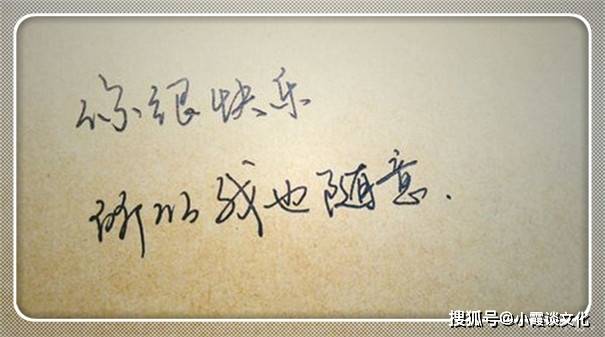 你很快乐
所以我也随意.
搜狐号@小霞谈文化